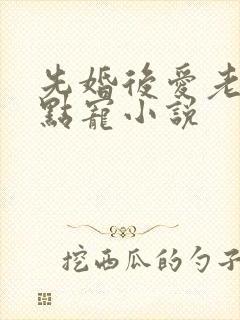 先婚後愛老
點寵小説
挖西瓜的勺子